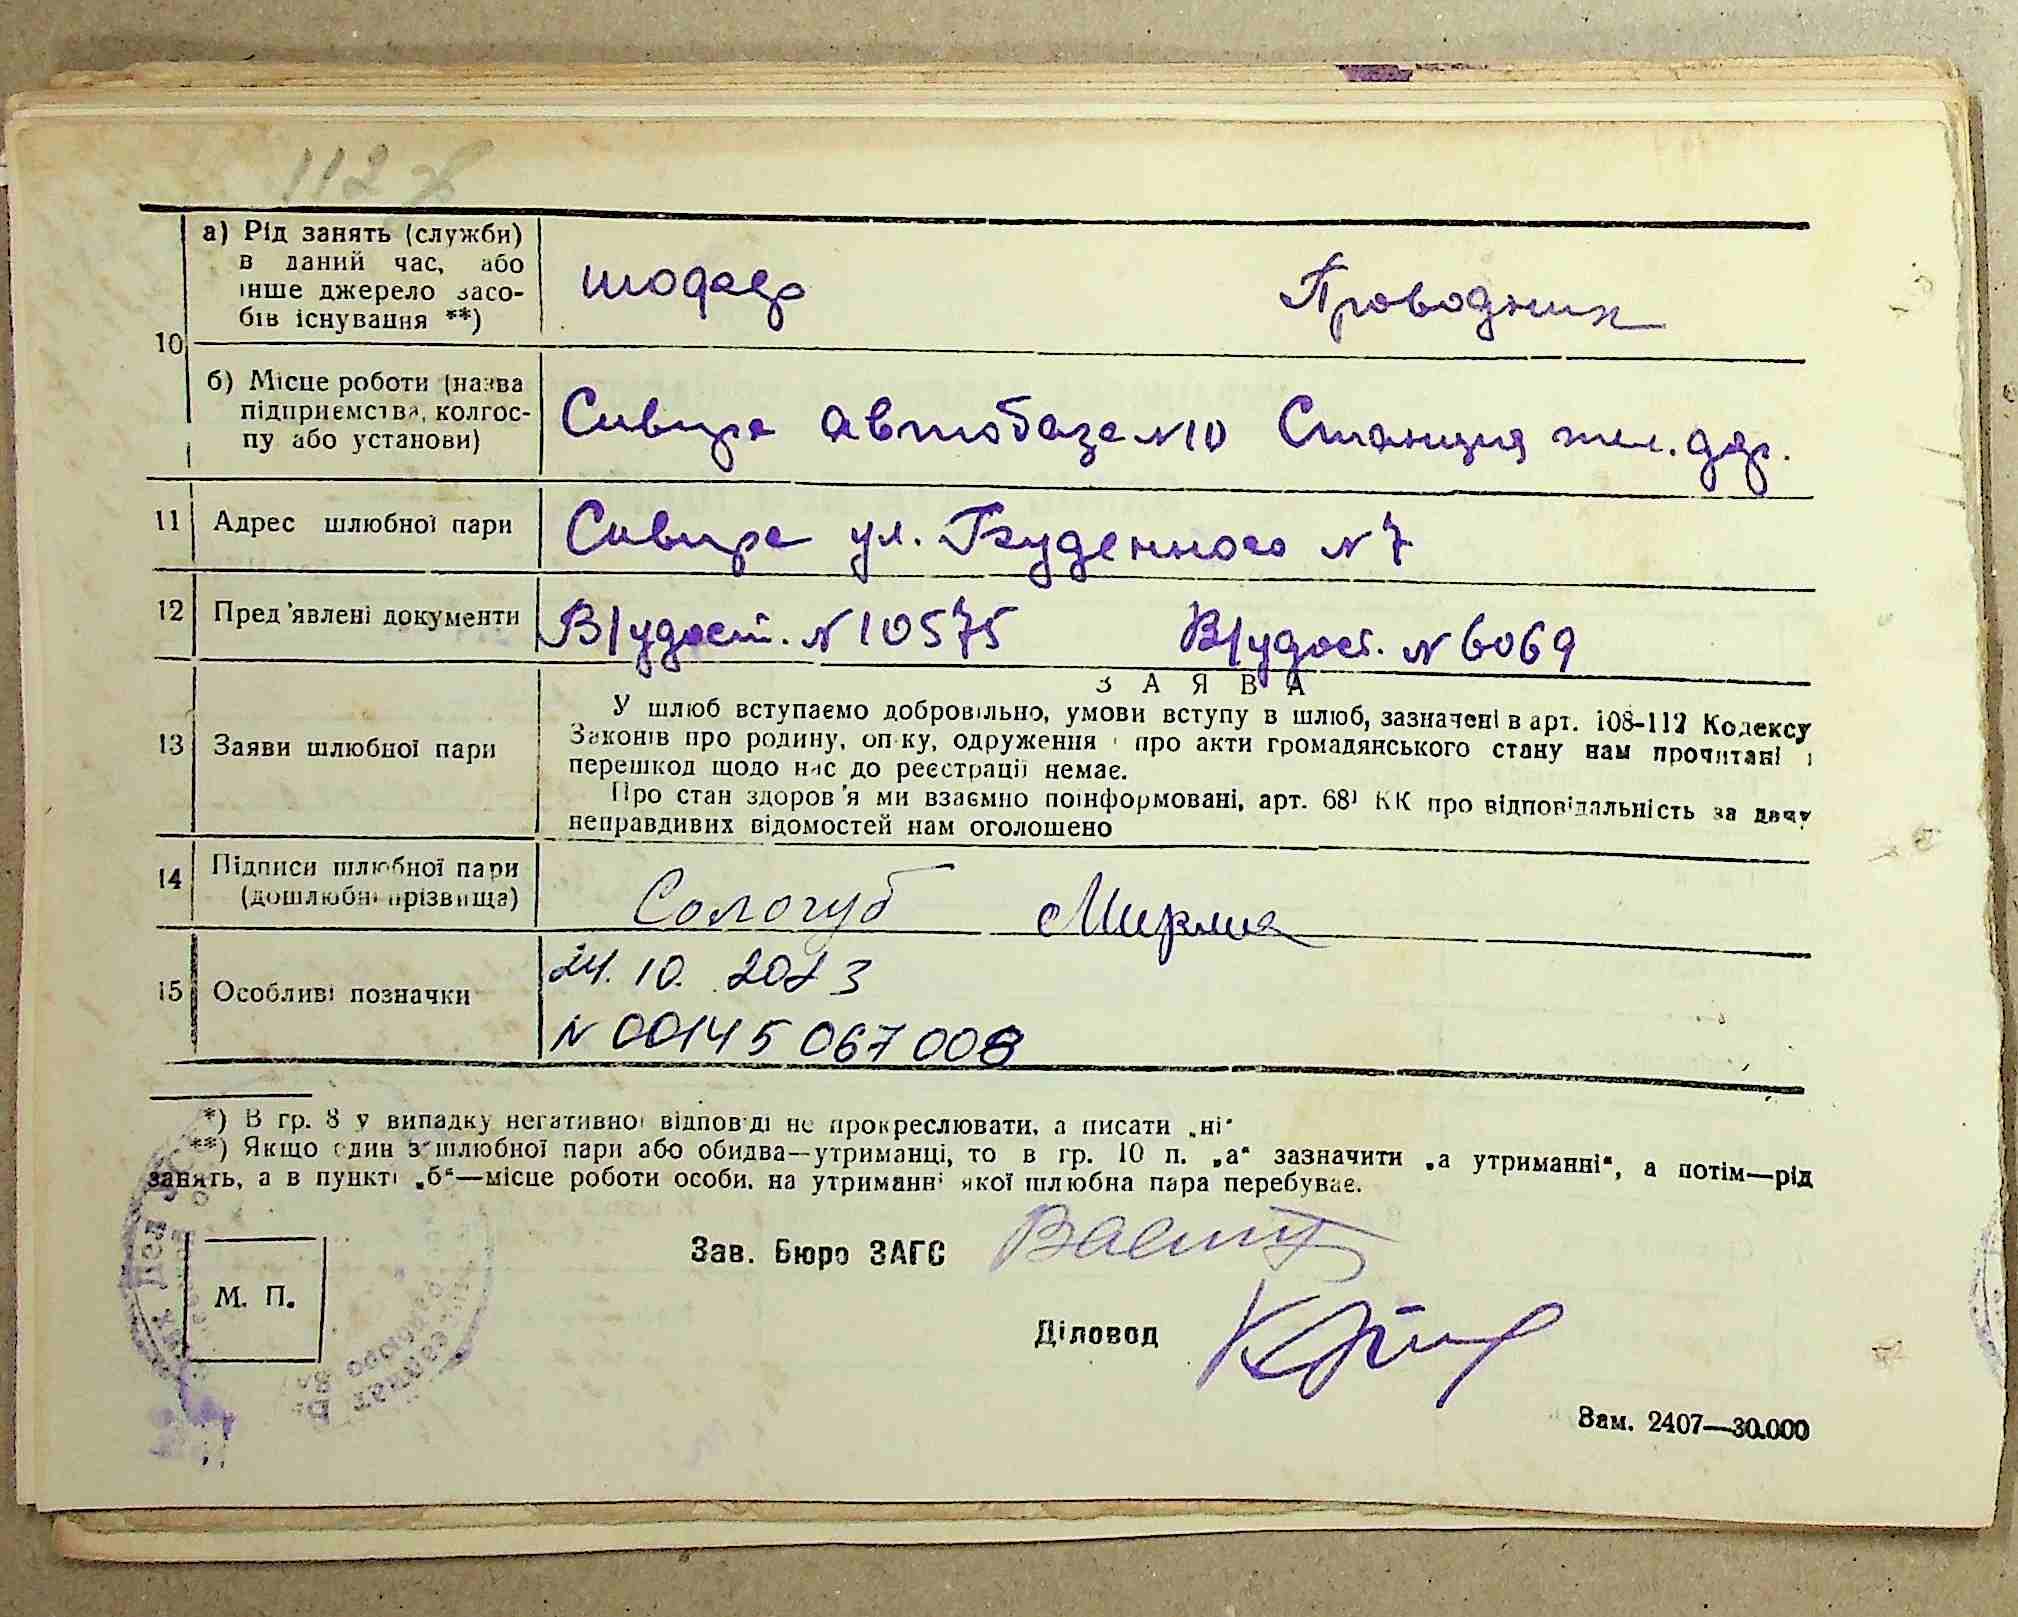 112 зв
а) Рід занять (служби)
в даний час, або
інше джерело засо-
бів існування **)
шофер
Проводник
10
б) Місце роботи (назва
підприємства, колгос-
пу або установи)
Сквира Автобаза №10 Станция жел. дор.
11 Адрес шлюбної пари
Сквира ул. Буденного №7
12 Пред'явлені документи
В/удост. №10575 В/удост. №6069
13 Заяви шлюбної пари
ЗАЯВА
У шлюб вступаємо добровільно, умови вступу в шлюб, зазначені в арт. 108-112 Кодексу
Законів про родину, опіку, одруження і про акти громадянського стану нам прочитані і
перешкод щодо нас до реєстрації немає.
Про стан здоров'я ми взаємно поінформовані, арт. 68¹ КК про відповідальність за дачу
неправдивих відомостей нам оголошено
14 Підписи шлюбної пари
(дошлюбні прізвища)
Сологуб
15 Особливі позначки
24.10.2023
N 00145067008
*) В гр. 8 у випадку негативної відповіді не прокреслювати, а писати „ні"
**) Якщо один з шлюбної пари або обидва—утриманці, то в гр. 10 п. „а" зазначити „а утриманні", а потім—рід
занять, а в пункті „б"—місце роботи особи, на утриманні якої шлюбна пара перебуває.
Зав. Бюро ЗАГС
М. П.
Діловод
Зам. 2407—30.000